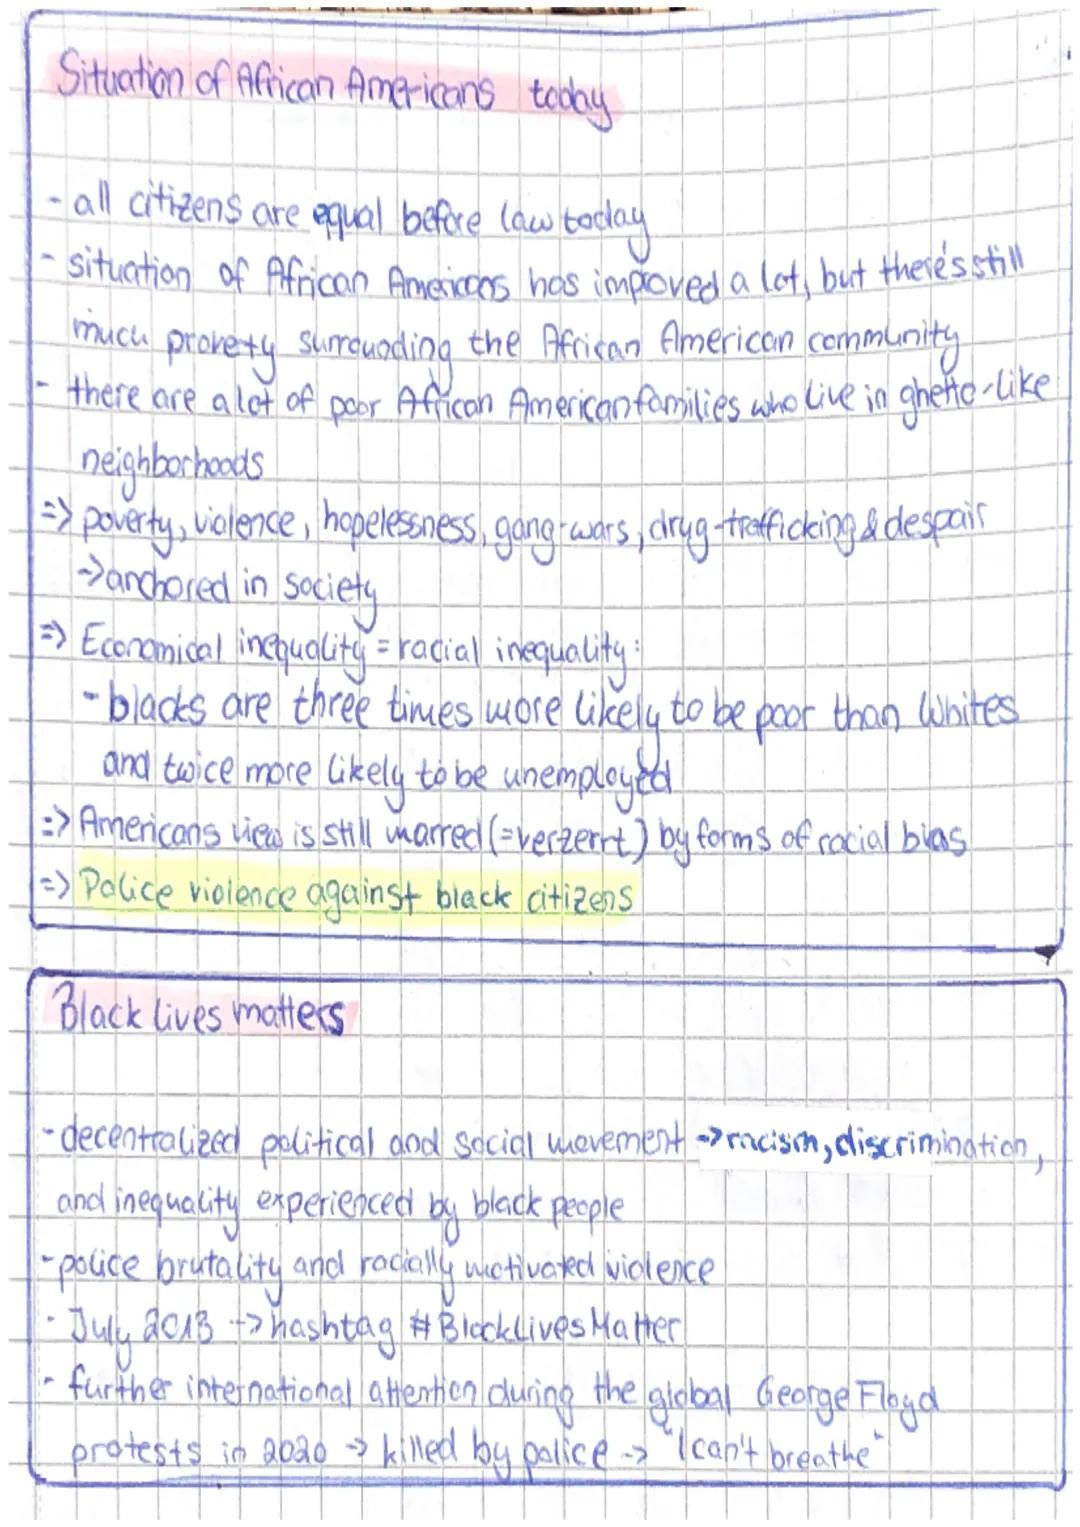 Situation of African Americans today
- all citizens are equal before law today
- situation of African Americans has improved a lot, but there's still
much provety surrounding the African American community
- there are a lot of poor African American families who live in ghetto-like
neighborhoods
=> poverty, violence, hopelessness, gang-wars, drug-trafficking & despair
-> anchored in society
=> Economical inequality = racial inequality:
- blacks are three times more likely to be poor than Whites
and twice more likely to be unemployed
=> Americans view is still marred (=verzerrt) by forms of racial bias
=> Police violence against black citizens
Black lives matters
- decentralized political and social movement -> racism, discrimination,
and inequality experienced by black people
- police brutality and racially motivated violence
- July 2013 -> hashtag #BlackLivesMatter
- further international attention during the global George Floyd
protests in 2020 -> killed by police -> "I can't breathe"